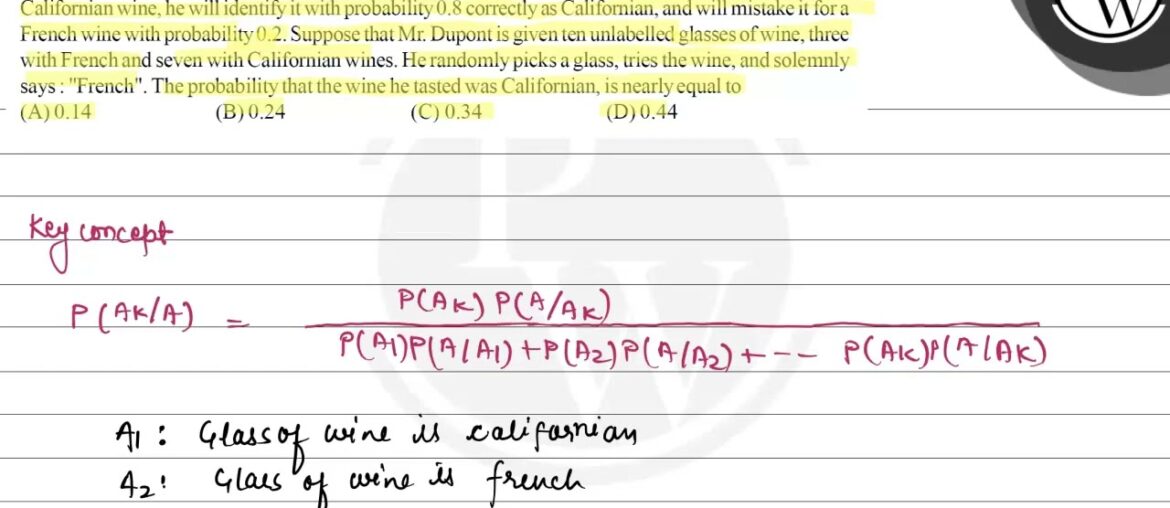 Californian wine, he will identify it with probability 0.8 correctly as Californian, and will mistake it for a
French wine with probability 0.2. Suppose that Mr. Dupont is given ten unlabelled glasses of wine, three
with French and seven with Californian wines. He randomly picks a glass, tries the wine, and solemnly
says : "French". The probability that the wine he tasted was Californian, is nearly equal to
(A) 0.14 (B) 0.24 (C) 0.34 (D) 0.44
W
PW
Key concept
P(AK/A) = P(AK) P(A/AK)
P(A1)P(A/A1) + P(A2)P(A/A2) + -- P(AK)P(A/AK)
A1 : Glass of wine is califarnian
A2: Glass of wine is french